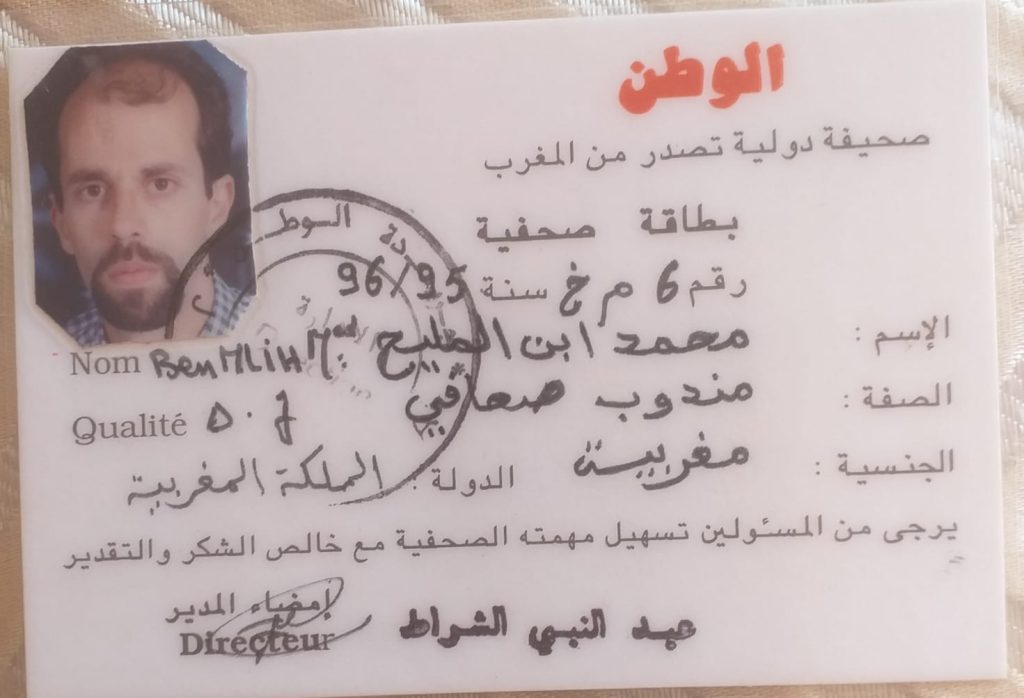 الوطن
صحيفة دولية تصدر من المغرب
بطاقة صحفية
رقم 6 م خ سنة 96/95
الإسم : محمد ابن المليح
Nom Ben MLiH Med
الصفة : مندوب صحافي
Qualité D.J
الجنسية : مغربية الدولة : المملكة المغربية
يرجى من المسئولين تسهيل مهمته الصحفية مع خالص الشكر والتقدير
إمضاء المدير
Directeur
عبد النبي الشراط